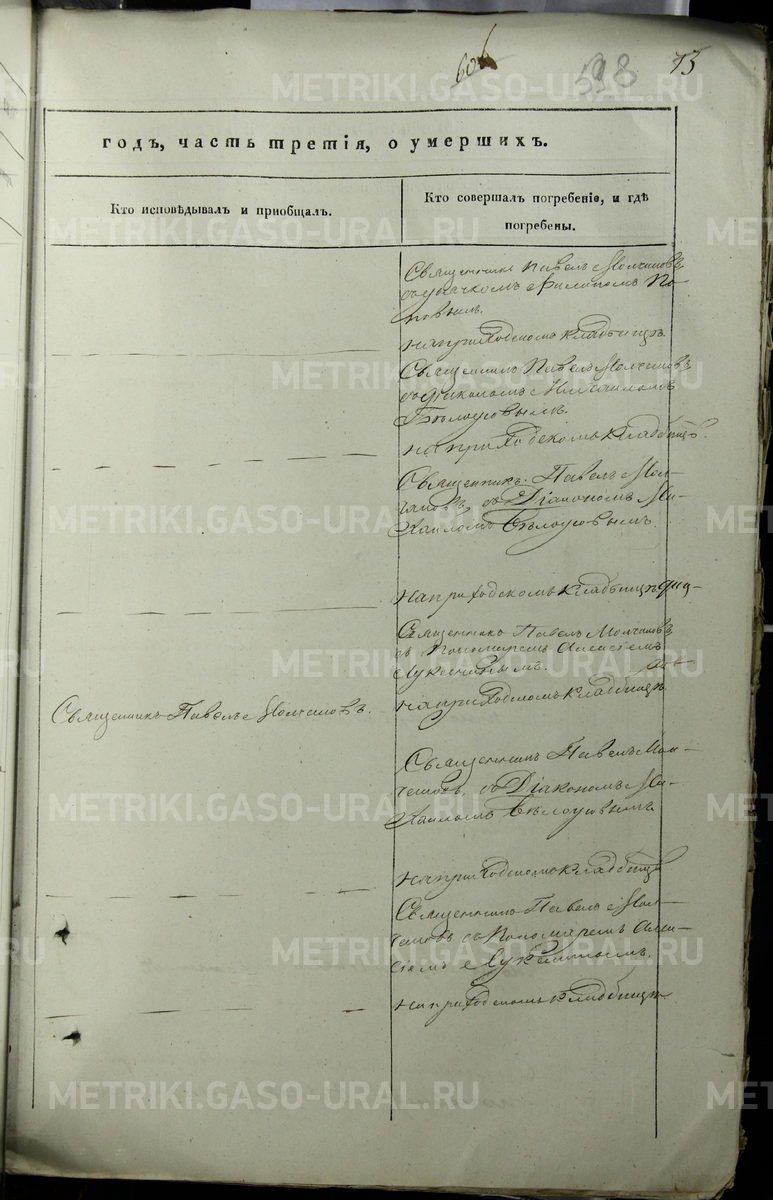 606 598 73
годъ, часть третія, о умершихъ.
Кто исповѣдывалъ и приобщалъ.
Кто совершалъ погребеніе, и гдѣ
погребены.
Священникъ Павелъ Молчановъ
съ дьячкомъ Филипомъ По-
повымъ.
на приходскомъ кладбищѣ
Священникъ Павелъ Молчановъ
съ Діакономъ Михаиломъ
Бѣлоусовымъ.
на приходскомъ кладбищѣ.
Священникъ Павелъ Мол-
чановъ, съ Діакономъ Ми-
хаиломъ Бѣлоусовымъ
На приходскомъ кладбищѣ
Священникъ Павелъ Молчановъ
съ Пономаремъ
на приходскомъ кладбищѣ
Священникъ Павелъ Молчановъ.
Священникъ Павелъ Мол-
чановъ, съ Діакономъ Ми-
хаиломъ Бѣлоусовымъ
на приходскомъ кладбищѣ
Священникъ Павелъ Мол-
чановъ съ Пономаремъ
на приходскомъ кладбищѣ
METRIKI.GASO-URAL.RU